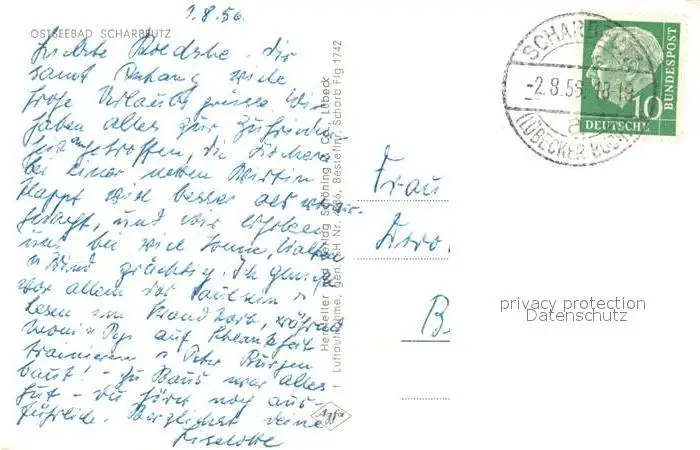 1.8.56.
OSTSEEBAD SCHARBEUTZ
Dir
samt Anhang viele
frohe Urlaubsgrüsse. Wir
haben alles zur Zufrieden-
heit angetroffen, die
bei einer netten Wirtin
klappt viel besser als
gesagt, und wir erholen
uns bei viel Sonne,
u. Wind prächtig. Ich geniesse
vor allem das Faulsein u.
Lesen im Strandkorb, während
auf Schlankheit
trainieren u. Peter Burgen
baut! - Zu Haus war alles
gut - du hörst noch aus-
führlich. Herzlichst Deine
Liselotte
Hersteller und Verlag Schöning & Co., Lübeck
† Luftaufnahme, gen. SH Nr. Bestellnr. Scharb Flg 1742
Agfa
SCHARBEUTZ
-2.8.56.18-19
a
(LÜBECKER BUCHT)
10
DEUTSCHE
BUNDESPOST
Frau
B
privacy protection
Datenschutz